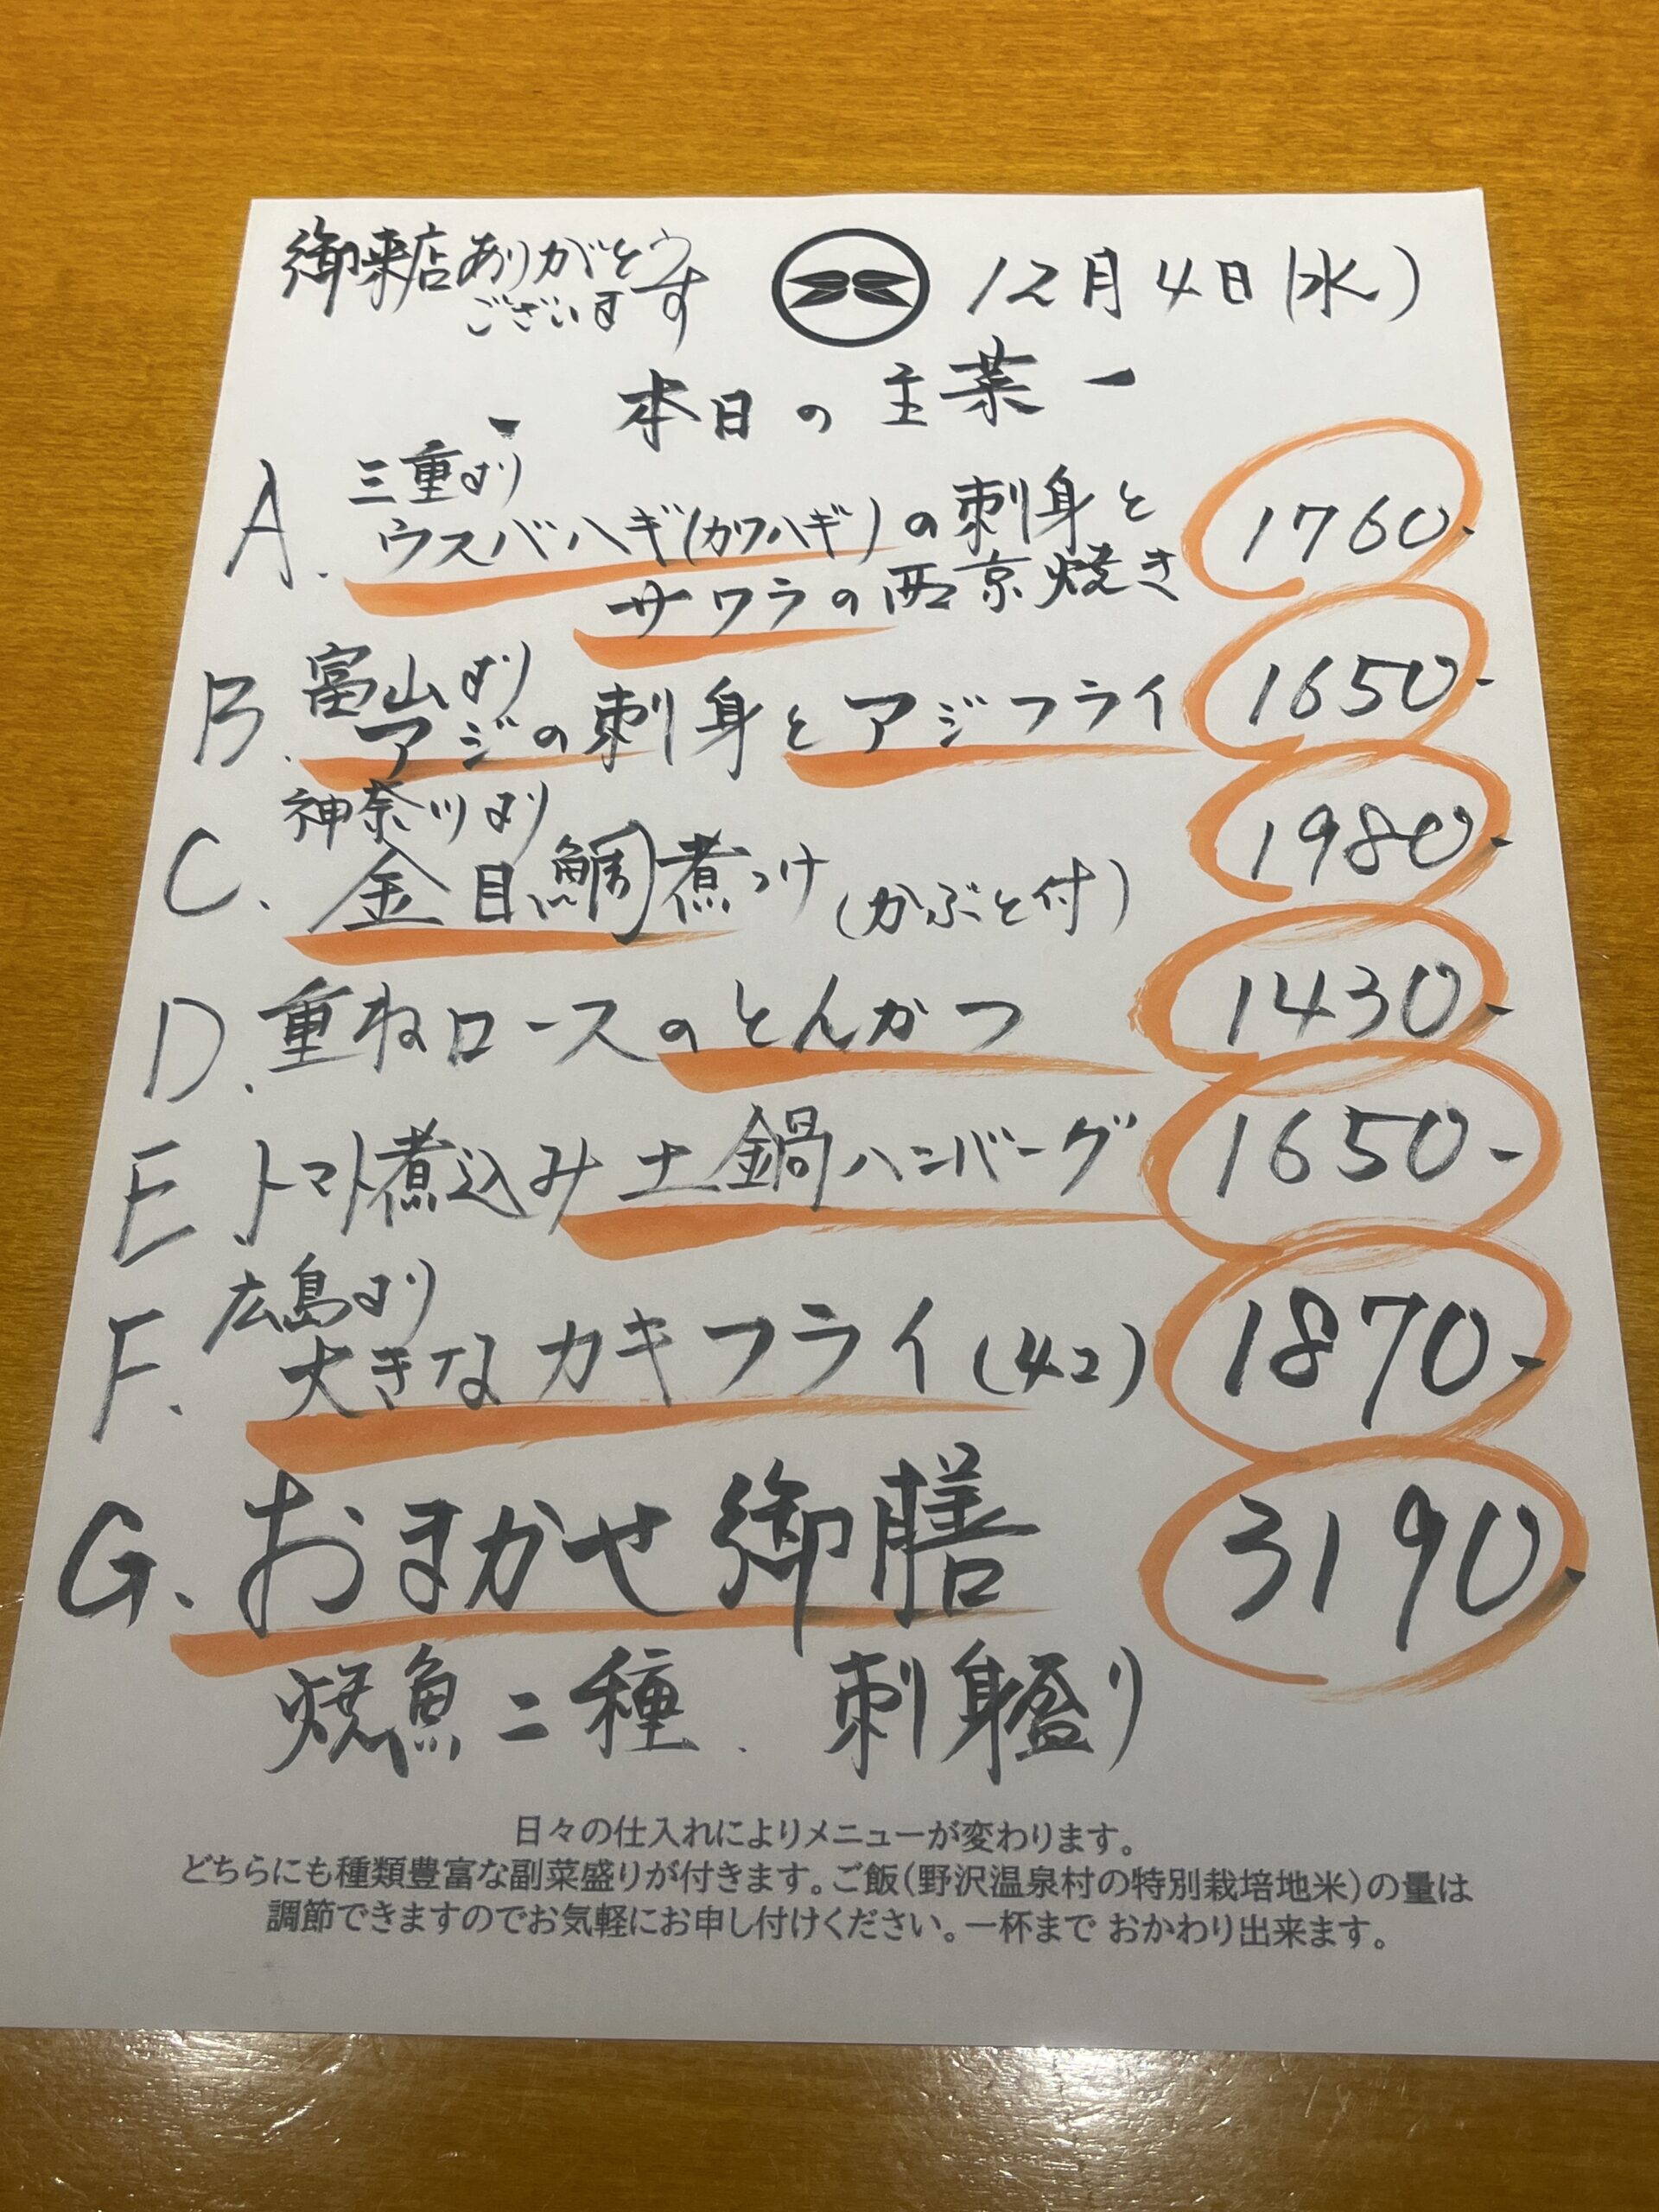 御来店ありがとう
ございます
12月4日(水)
- 本日の主菜 -
A. 三重より
ウスバハギ(カワハギ)の刺身と 1760-
サワラの西京焼き
B. 富山より
アジの刺身とアジフライ 1650-
神奈川より
C. 金目鯛煮つけ(かぶと付) 1980-
D. 重ねロースのとんかつ 1430-
E. トマト煮込み土鍋ハンバーグ 1650-
広島より
F. 大きなカキフライ(4コ) 1870-
G. おまかせ御膳 3190-
焼魚二種. 刺身盛り
日々の仕入れによりメニューが変わります。
どちらにも種類豊富な副菜盛りが付きます。ご飯(野沢温泉村の特別栽培地米)の量は
調節できますのでお気軽にお申し付けください。一杯まで おかわり出来ます。